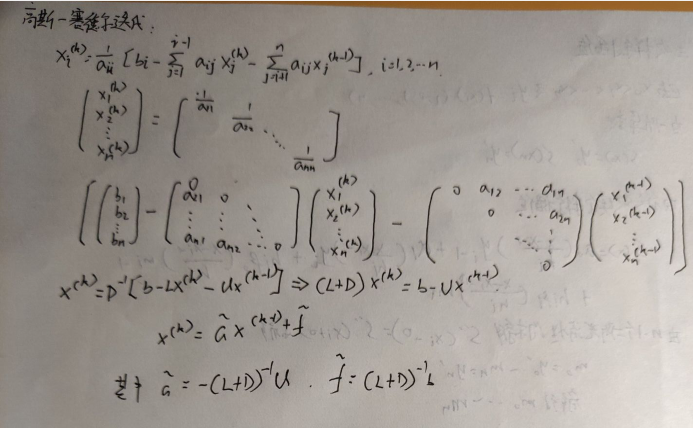 高斯-赛德尔迭代:
x_i^{(k)} = \frac{1}{a_{ii}} [b_i - \sum_{j=1}^{i-1} a_{ij} x_j^{(k)} - \sum_{j=i+1}^{n} a_{ij} x_j^{(k-1)}], i=1,2,…n.
\begin{pmatrix} x_1^{(k)} \\ x_2^{(k)} \\ \vdots \\ x_n^{(k)} \end{pmatrix} = \begin{bmatrix} \frac{1}{a_{11}} & & & \\ & \frac{1}{a_{22}} & & \\ & & \ddots & \\ & & & \frac{1}{a_{nn}} \end{bmatrix}
\left[ \begin{pmatrix} b_1 \\ b_2 \\ \vdots \\ b_n \end{pmatrix} - \begin{pmatrix} 0 & & & \\ a_{21} & 0 & & \\ \vdots & \vdots & \ddots & \\ a_{n1} & a_{n2} & \cdots & 0 \end{pmatrix} \begin{pmatrix} x_1^{(k)} \\ x_2^{(k)} \\ \vdots \\ x_n^{(k)} \end{pmatrix} - \begin{pmatrix} 0 & a_{12} & \cdots & a_{1n} \\ & 0 & \cdots & a_{2n} \\ & & \ddots & \vdots \\ & & & 0 \end{pmatrix} \begin{pmatrix} x_1^{(k-1)} \\ x_2^{(k-1)} \\ \vdots \\ x_n^{(k-1)} \end{pmatrix}
x^{(k)} = D^{-1} [b - Lx^{(k)} - Ux^{(k-1)}] ⇒ (L+D) x^{(k)} = b - Ux^{(k-1)}
x^{(k)} = \tilde{G} x^{(k-1)} + \tilde{f}
其中 \tilde{G} = -(L+D)^{-1}U . \tilde{f} = (L+D)^{-1}b